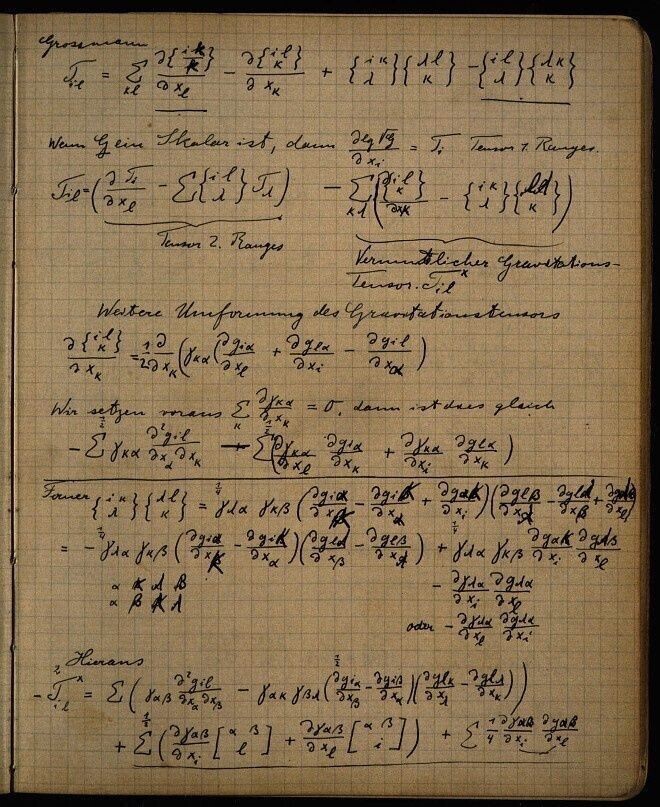 Grossmann
T_il = Σ_κl ∂{i κ \ κ}/∂x_l − ∂{i l \ κ}/∂x_κ + {i κ \ λ}{λ l \ κ} − {i l \ λ}{λ κ \ κ}
Wenn G ein Skalar ist, dann ∂lg√G/∂x_i = T_i Tensor 1. Ranges.
T_il = (∂T_i/∂x_l − Σ{i l \ λ}T_λ) − Σ_κλ(∂{i l \ κ}/∂x_κ − {i κ \ λ}{λ l \ κ})
Tensor 2. Ranges
Vermutlicher Gravitations-
Tensor. T_il^x
Weitere Umformung des Gravitationstensors
∂{i l \ κ}/∂x_κ = 1/2 ∂/∂x_κ (γ_κα(∂g_iα/∂x_l + ∂g_lα/∂x_i − ∂g_il/∂x_α)
Wir setzen voraus Σ_κ ∂γ_κα/∂x_κ = 0, dann ist dies gleich
− 1/2 Σ γ_κα ∂²g_il/∂x_α∂x_κ + 1/2 Σ(∂γ_κα/∂x_l ∂g_iα/∂x_κ + ∂γ_κα/∂x_i ∂g_lα/∂x_κ)
Ferner {i κ \ λ}{λ l \ κ} = 1/4 γ_λα γ_κβ (∂g_iα/∂x_κ − ∂g_iκ/∂x_α + ∂g_ακ/∂x_i)(∂g_lβ/∂x_λ − ∂g_lλ/∂x_β + ∂g_λβ/∂x_l)
= − 1/4 γ_λα γ_κβ (∂g_iα/∂x_κ − ∂g_iκ/∂x_α)(∂g_lλ/∂x_β − ∂g_lβ/∂x_λ) + 1/4 γ_λα γ_κβ ∂g_ακ/∂x_i ∂g_λβ/∂x_l
α κ λ β
α β κ λ
− ∂γ_λα/∂x_i ∂g_λα/∂x_l
oder − ∂γ_λα/∂x_l ∂g_λα/∂x_i
Hieraus
− 2 T_il^x = Σ(γ_αβ ∂²g_il/∂x_α∂x_β − 1/2 γ_ακ γ_βλ (∂g_iα/∂x_β − ∂g_iβ/∂x_α)(∂g_lκ/∂x_λ − ∂g_lλ/∂x_κ))
+ 1/2 Σ(∂γ_αβ/∂x_i [α β \ l] + ∂γ_αβ/∂x_l [α β \ i]) + Σ 1/4 ∂γ_αβ/∂x_i ∂g_αβ/∂x_l